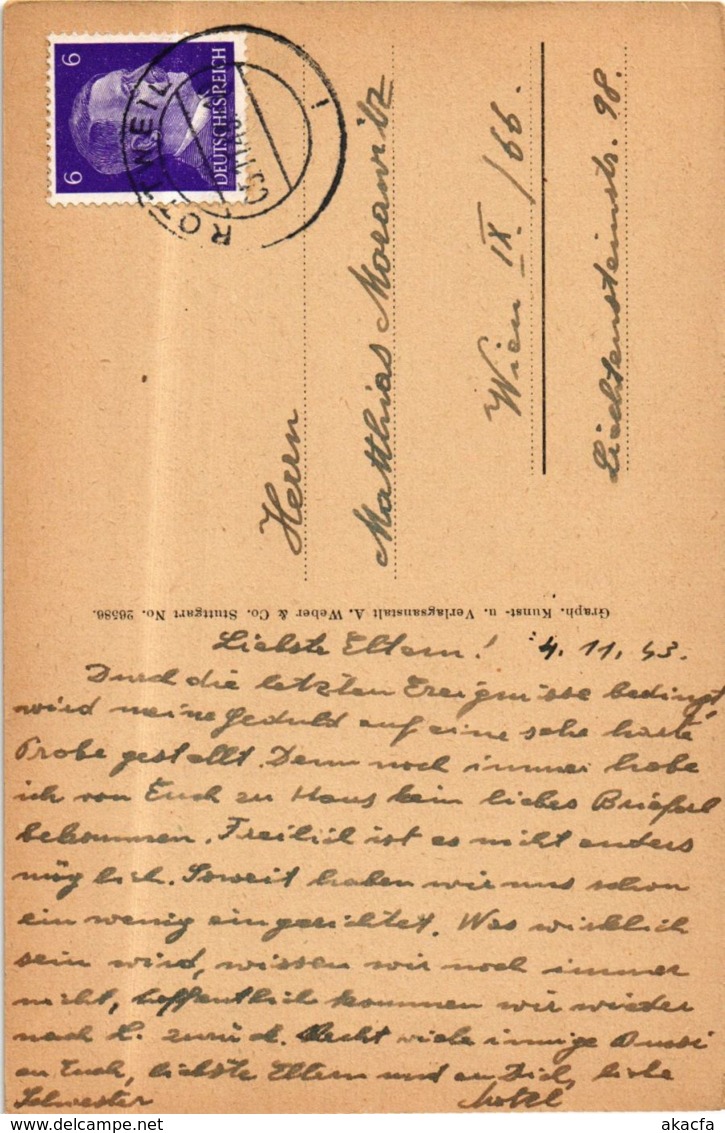 6
6
DEUTSCHES REICH
ROTTWEIL
Herrn
Matthias Morawitz
Wien IX./66.
Liechtensteinstr. 98.
Graph. Kunst- u. Verlagsanstalt A. Weber & Co. Stuttgart No. 26586.
Liebste Eltern! 4. 11. 43.
Durch die letzten Ereignisse bedingt,
wird meine Geduld auf eine sehr harte
Probe gestellt. Denn noch immer habe
ich von Euch zu Haus kein liebes Brieferl
bekommen. Freilich ist es nicht anders
möglich. Soweit haben wir uns schon
ein wenig eingerichtet. Was wirklich
sein wird, wissen wir noch immer
nicht, hoffentlich kommen wir wieder
nach L. zurück. Recht viele innige Bussi
an Euch, liebste Eltern und an Dich, liebe
Schwester
akacfa